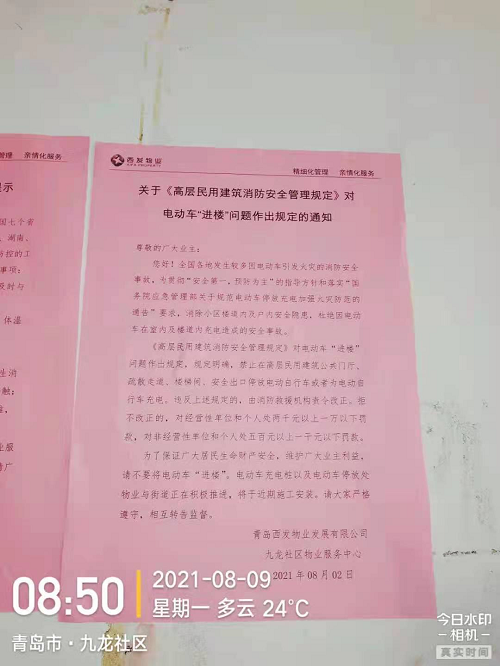 理　亲情化服务
示
国七个省
、湖南、
防控的工
事项：
及时与
体温
生消
触；
业服
厂
西发物业
精细化管理　亲情化服务
关于《高层民用建筑消防安全管理规定》对
电动车“进楼”问题作出规定的通知
尊敬的广大业主：
您好！全国各地发生较多因电动车引发火灾的消防安全
事故，为贯彻“安全第一，预防为主”的指导方针和落实“国
务院应急管理部关于规范电动车停放充电加强火灾防范的
通告”要求，消除小区楼道内及户内安全隐患，杜绝因电动
车在室内及楼道内充电造成的安全事故。
《高层民用建筑消防安全管理规定》对电动车“进楼”
问题作出规定，规定明确，禁止在高层民用建筑公共门厅、
疏散走道、楼梯间、安全出口停放电动自行车或者为电动自
行车充电。违反上述规定的，由消防救援机构责令改正，拒
不改正的，对经营性单位和个人处两千元以上一万以下罚
款，对非经营性单位和个人处五百元以上一千元以下罚款。
为了保证广大居民生命财产安全，维护广大业主利益，
请不要将电动车“进楼”。电动车充电桩以及电动车停放处
物业与街道正在积极推进，将于近期施工安装。请大家严格
遵守，相互转告监督。
青岛西发物业发展有限公司
九龙社区物业服务中心
2021 年 08 月 02 日
08:50
2021-08-09
星期一 多云 24℃
青岛市·九龙社区
今日水印
-相机-
真实时间